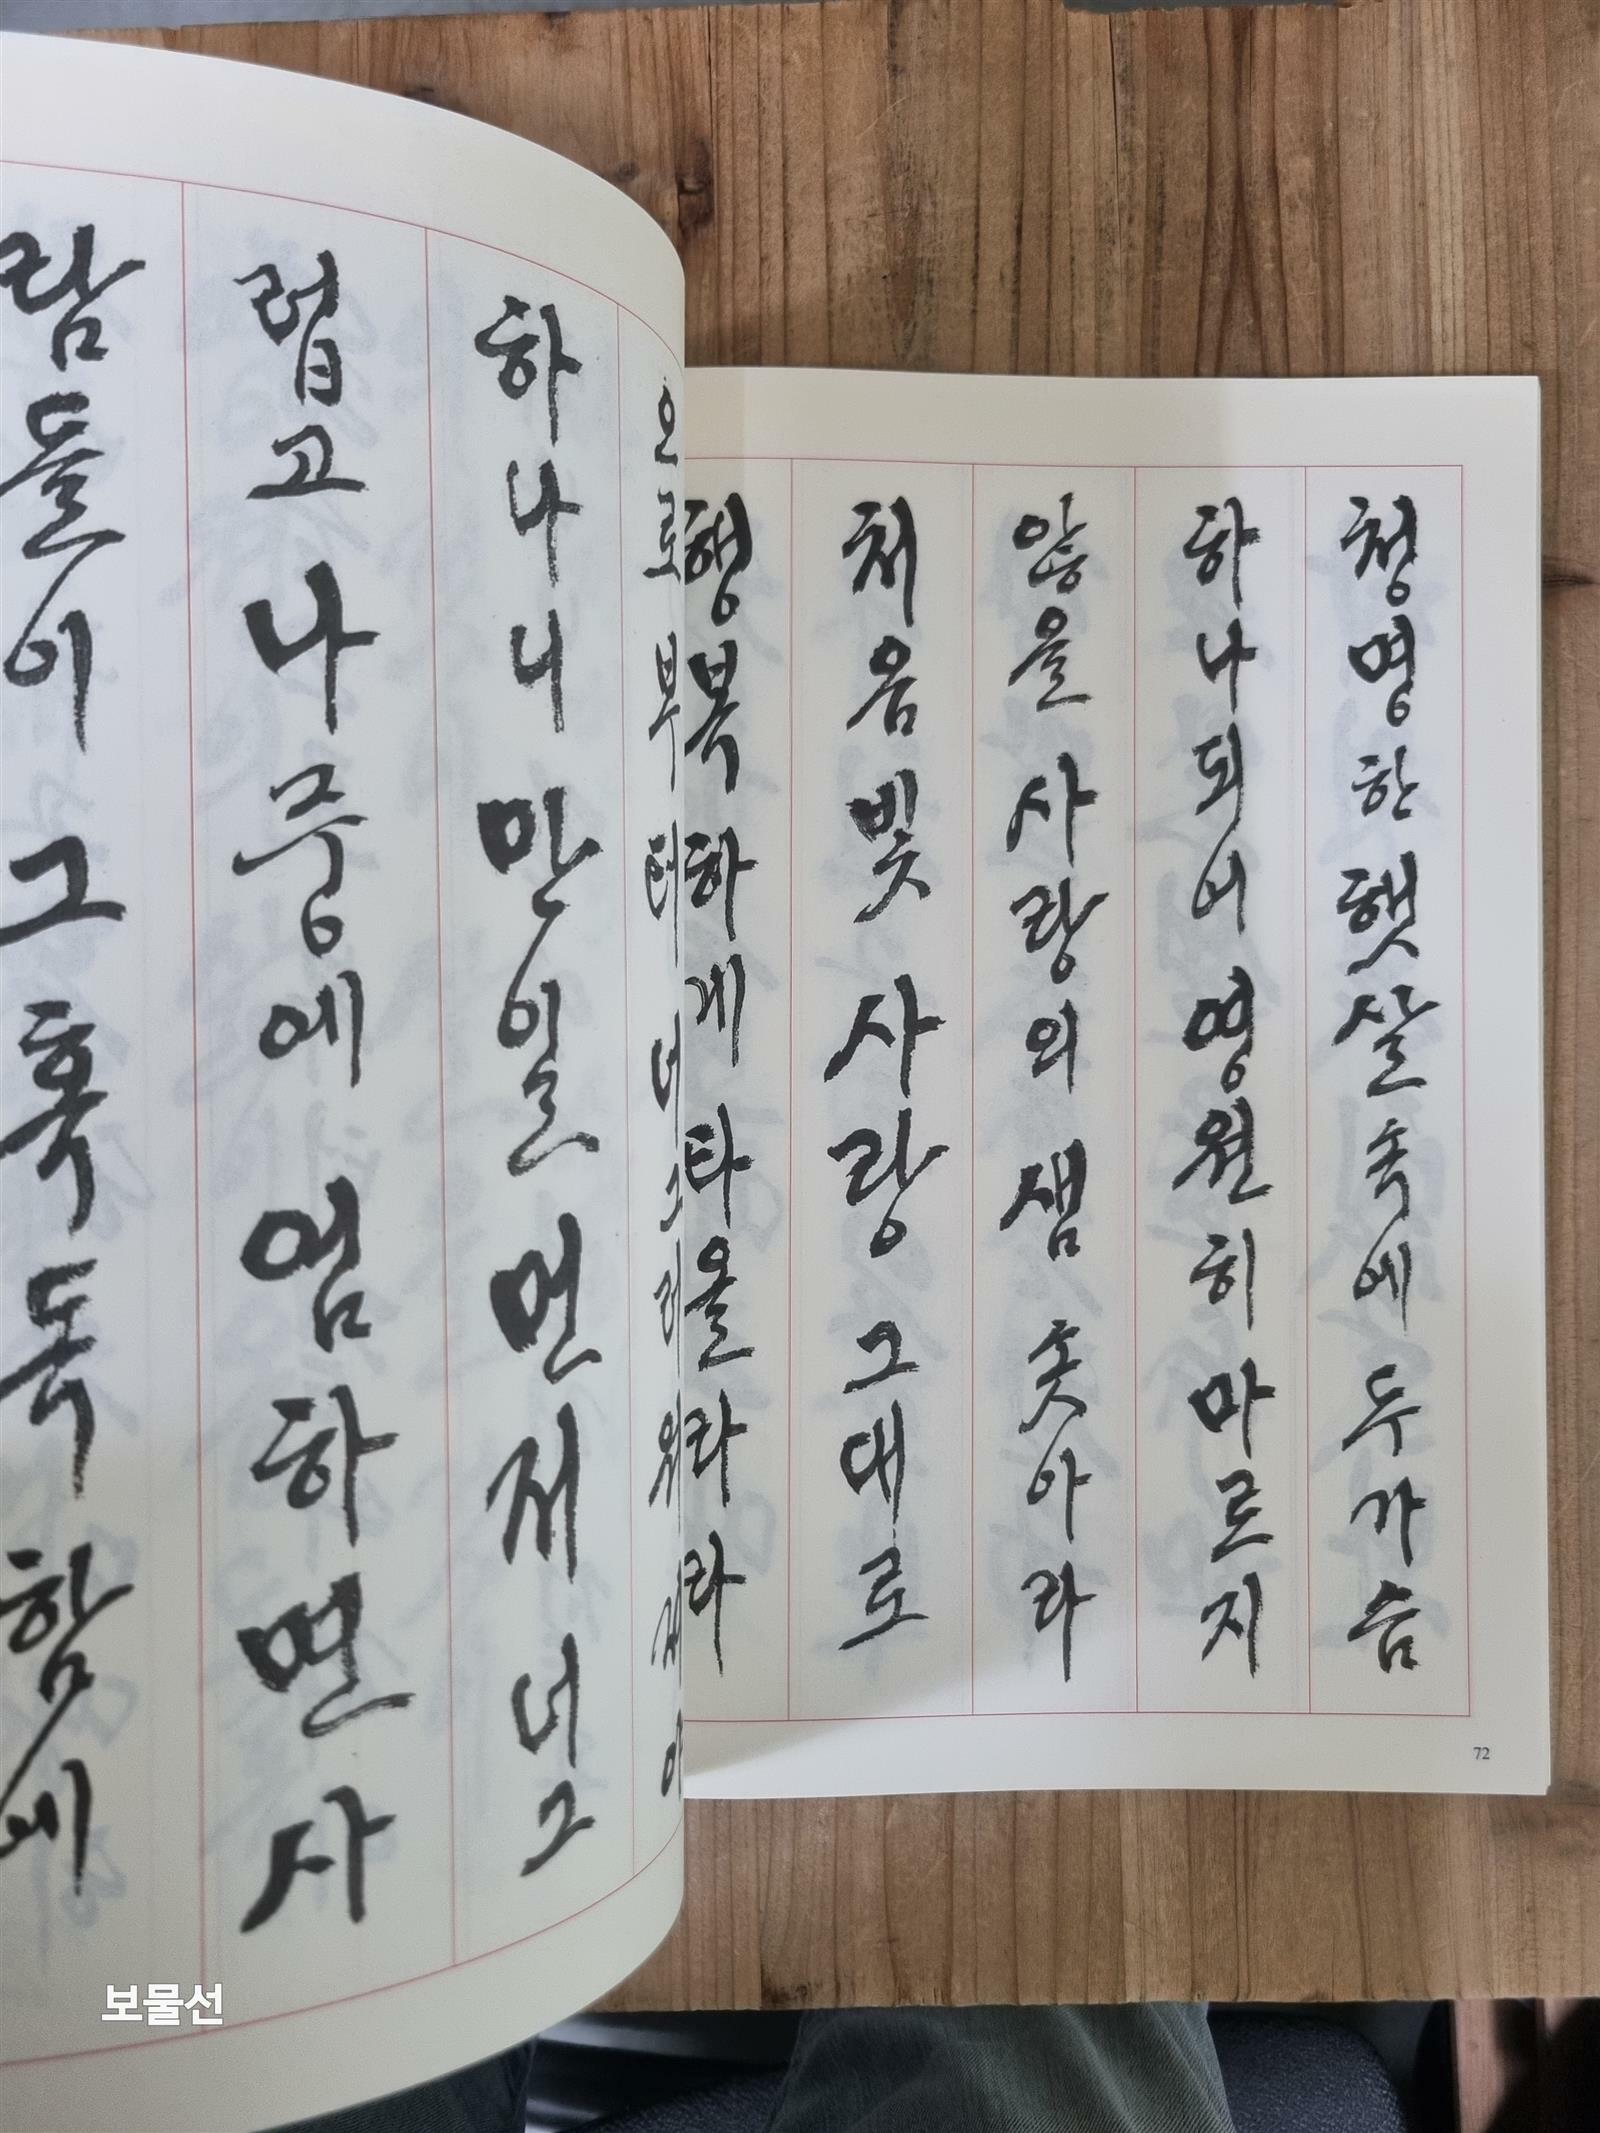 청명한 햇살 속에 두 가슴
하나되어 영원히 마르지
않을 사랑의 샘 솟아라
처음 빛 사랑 그대로
행복하게 타올라라
72
오로부터 너그러워
하나니 만일 먼저 너그
럽고 나중에 엄하면 사
람들이 그 혹독함에
보물선